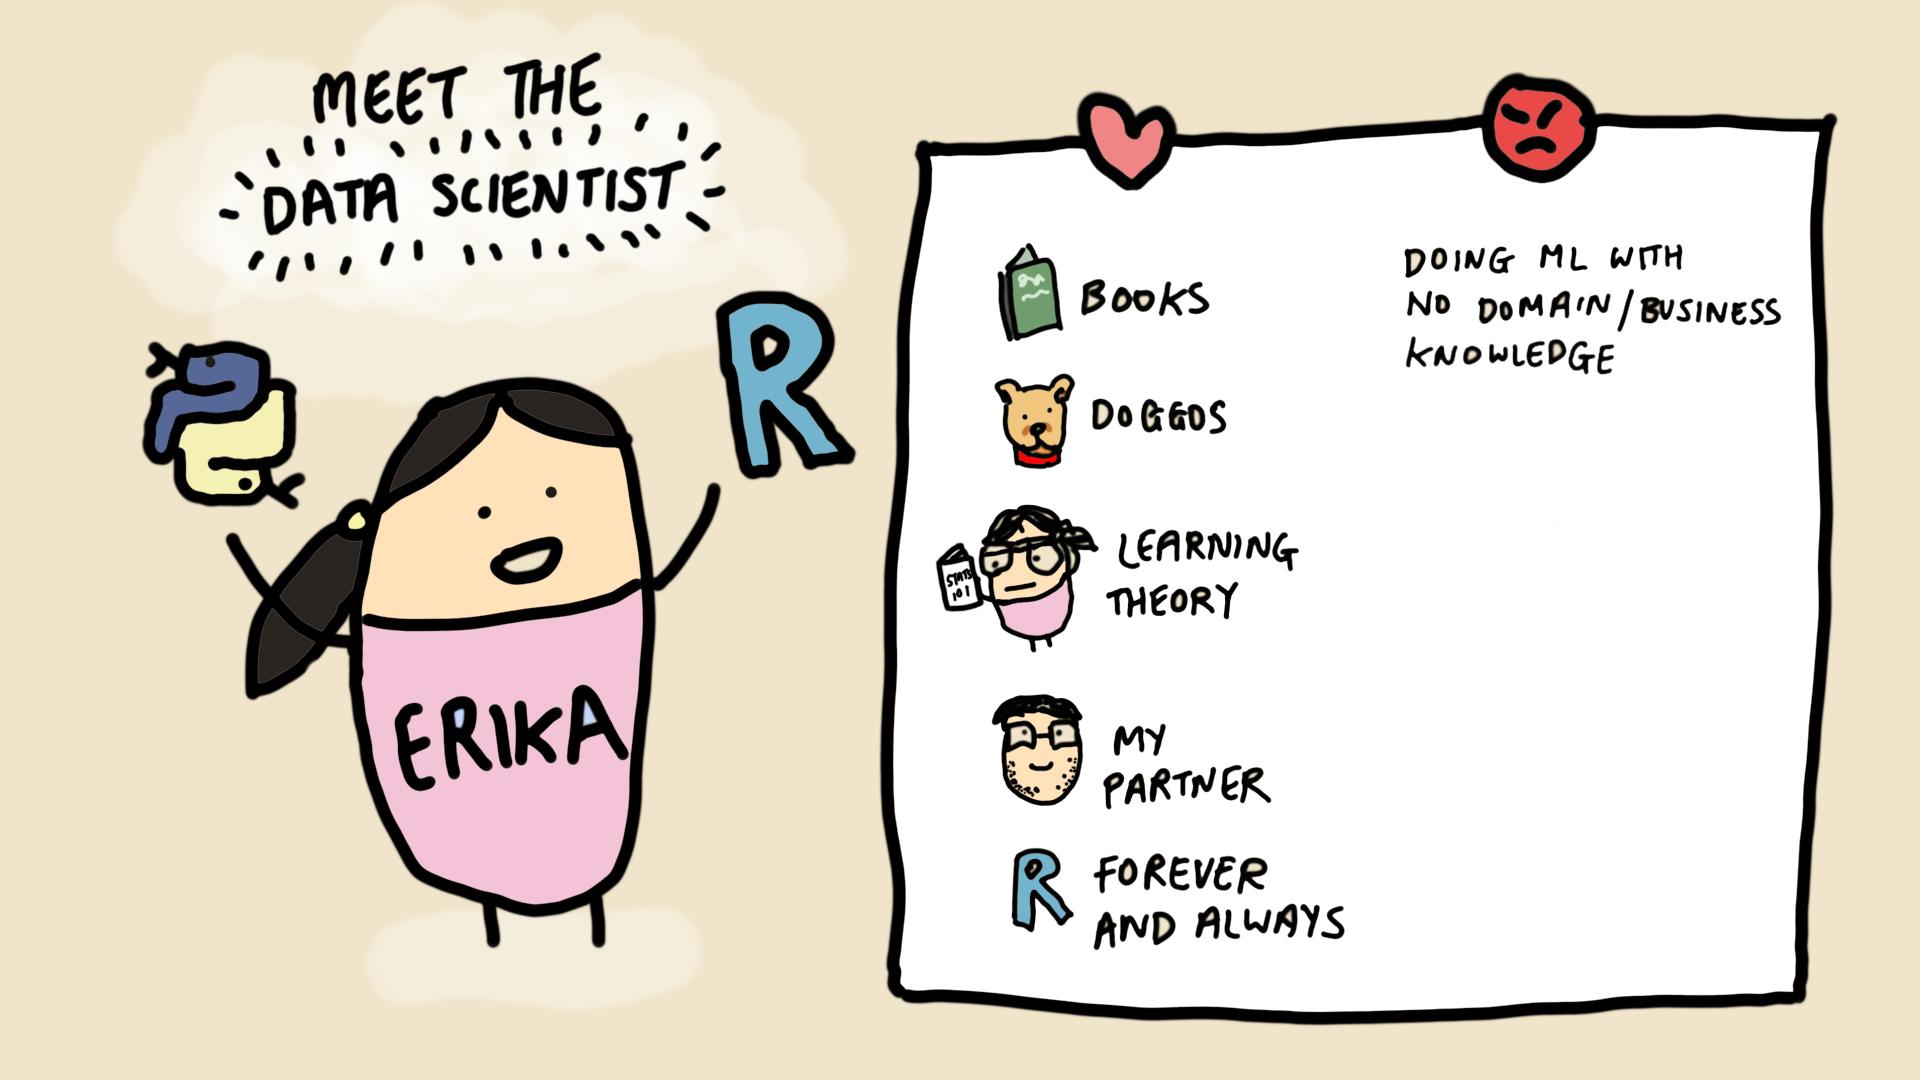 MEET THE
DATA SCIENTIST
R
ERIKA
BOOKS
DOGGOS
STATS
101
LEARNING
THEORY
MY
PARTNER
R FOREVER
AND ALWAYS
DOING ML WITH
NO DOMAIN/BUSINESS
KNOWLEDGE